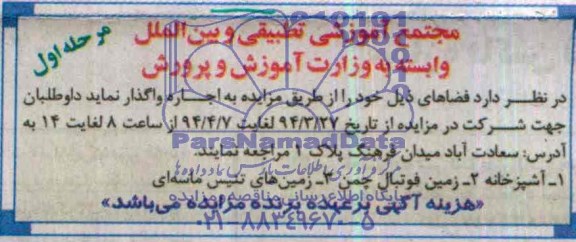 مجتمع آموزشی تطبیقی و بین الملل
وابسته به وزارت آموزش و پرورش
مرحله اول
در نظر دارد فضاهای ذیل خود را از طریق مزایده به اجاره واگذار نماید داوطلبان
جهت شرکت در مزایده از تاریخ ۹۴/۳/۲۷ لغایت ۹۴/۴/۷ از ساعت ۸ لغایت ۱۴ به
آدرس: سعادت آباد میدان فرهنگ پلاک ۱ مراجعه نمایند.
ParsNamadData
مرکز فرآوری اطلاعات پارس نماد داده ها
۱ـ آشپزخانه ۲ـ زمین فوتبال چمن ۳ـ زمین های تنیس ماسه‌ای
پایگاه اطلاع رسانی مناقصه و مزایده
«هزینه آگهی برعهده برنده مزایده می‌باشد»
۰۲۱-۸۸۳۴۹۶۷۰-۵